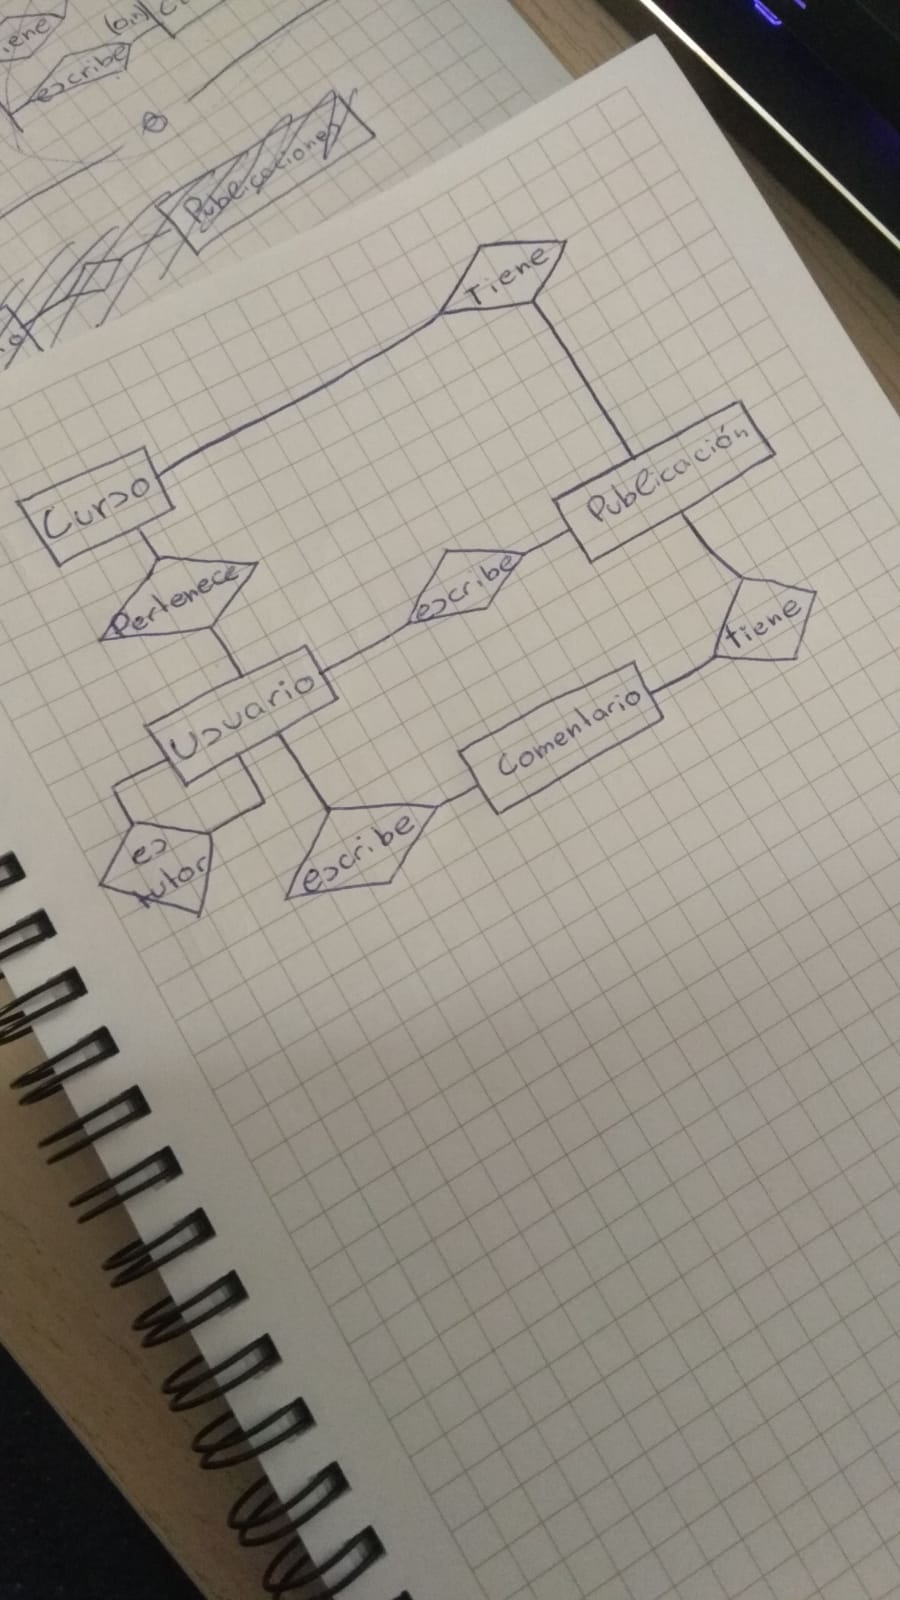 escribe
Publicaciones
Tiene
Curso
Publicación
Pertenece
escribe
tiene
Usuario
Comentario
es
tutor
escribe